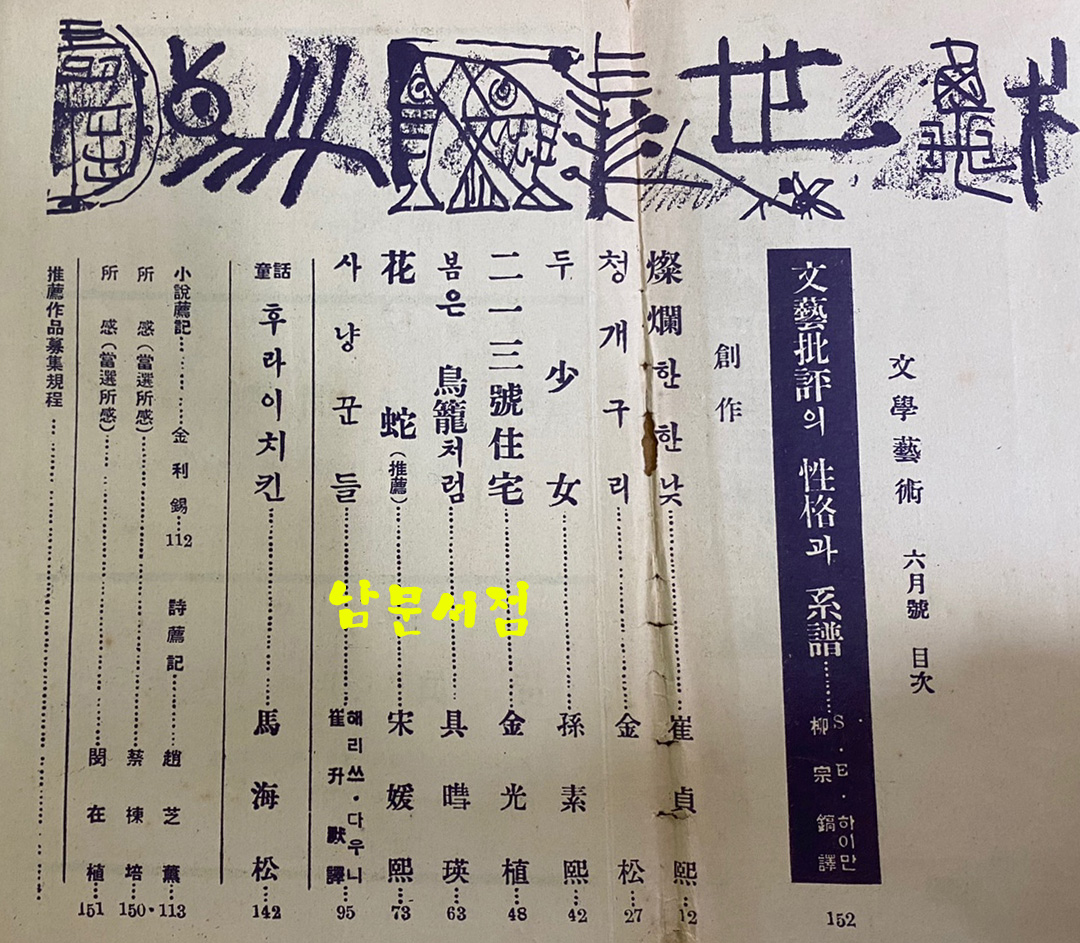 文學藝術 六月號 目次
文藝批評의 性格과 系譜……… S·E·하이만 柳宗鎬 譯 152
創作
燦爛한 한낮……… 崔貞熙……12
청개구리……… 金松……27
두 少女……… 孫素熙……42
二一三號住宅……… 金光植……48
봄은 鳥籠처럼……… 具暳瑛……63
花蛇(推薦)……… 宋媛熙……73
사냥꾼들……… 해리쓰·다우니 崔升默 譯……95
童話 후라이치킨……… 馬海松……142
小說薦記……… 金利錫…112 詩薦記……… 趙芝薰…113
所感(當選所感)……… 蔡楝培…150
所感(當選所感)……… 閔在植…151
推薦作品募集規程………
남문서점